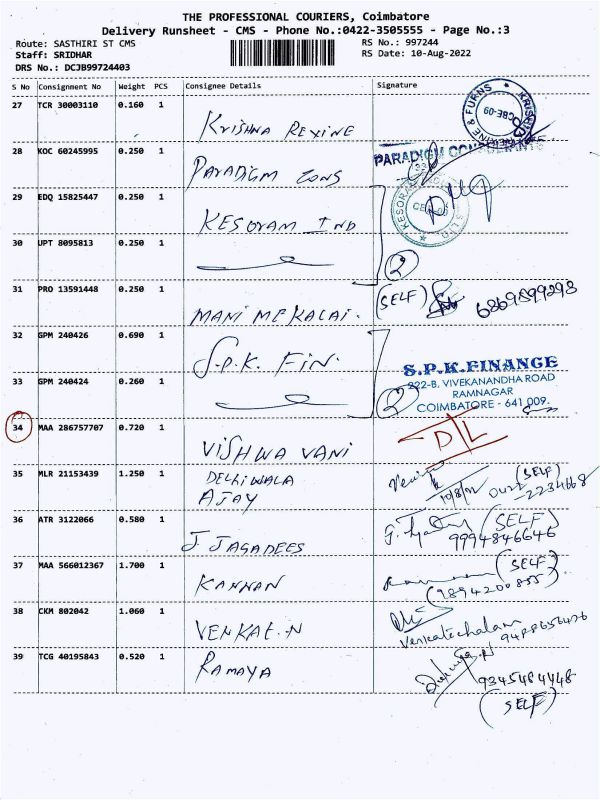 THE PROFESSIONAL COURIERS, Coimbatore
Delivery Runsheet - CMS - Phone No.:0422-3505555 - Page No.:3
Route: SASTHIRI ST CMS RS No.: 997244
Staff: SRIDHAR RS Date: 10-Aug-2022
DRS No.: DCJB99724403
S No Consignment No Weight PCS Consignee Details Signature
27 TCR 30003110 0.160 1 KRISHNA REXINE
28 KOC 60245995 0.250 1 PARADIGM CONS PARADIGM
29 EDQ 15825447 0.250 1 KESORAM IND
30 UPT 8095813 0.250 1 2
31 PRO 13591448 0.250 1 MANIMEKALAI. (SELF)
32 GPM 240426 0.690 1 S.P.K. FIN. S.P.K.FINANCE
222-B, VIVEKANANDHA ROAD
RAMNAGAR
33 GPM 240424 0.260 1 2 COIMBATORE - 641 009.
34 MAA 286757707 0.720 1 VISHWA VANI D/L
35 MLR 21153439 1.250 1 DELHIWALA (SELF)
AJAY 10/8/22 -2234668
36 ATR 3122066 0.580 1 J JAGADEES (SELF)
9994846646
37 MAA 566012367 1.700 1 KANNAN (SELF)
(9894200855)
38 CKM 802042 1.060 1 VENKAT.N
Venkatechalam
39 TCG 40195843 0.520 1 RAMAYA 9345484448
(SELF)